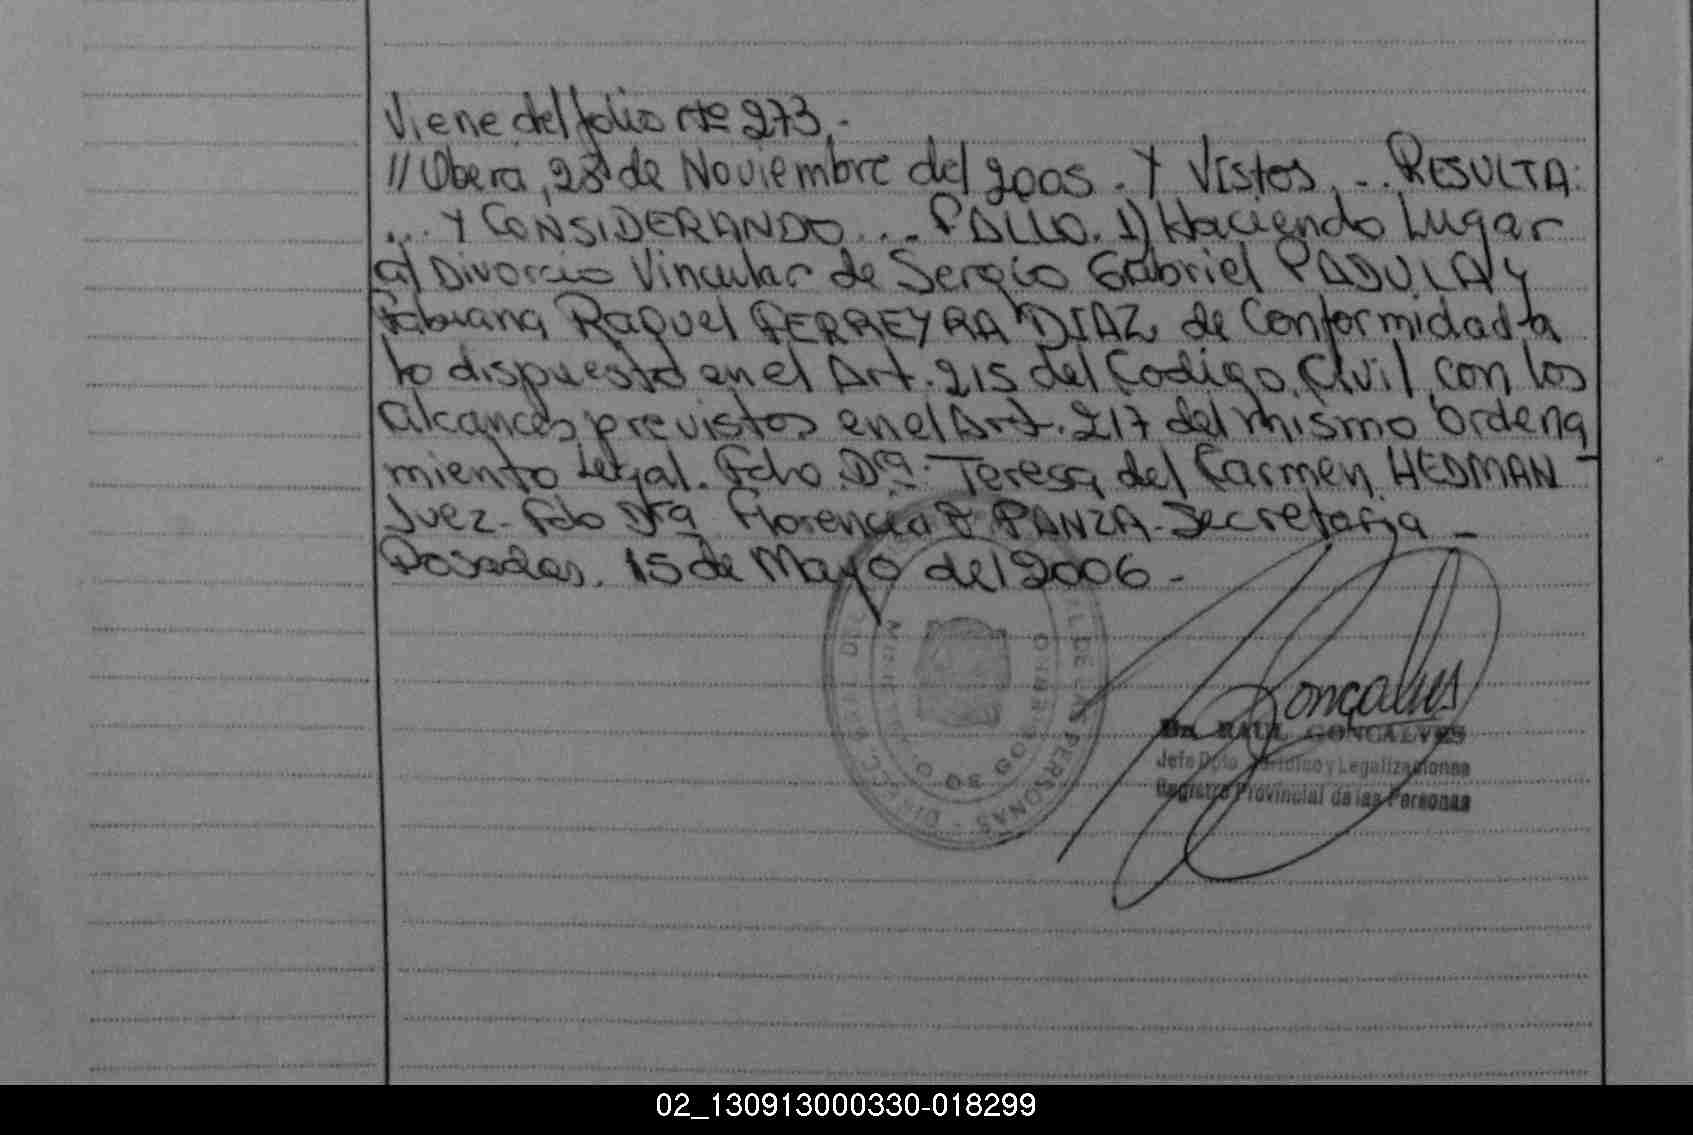 Viene del folio Nº 273.-
// Oberá, 28 de Noviembre del 2005. Y Vistos, ... RESULTA:
... Y CONSIDERANDO ... FALLO. 1) Haciendo Lugar
al Divorcio Vincular de Sergio Gabriel PADULA y
Fabiana Raquel FERREYRA DIAZ, de Conformidad a
lo dispuesto en el Art. 215 del Codigo Civil con los
alcances previstos en el Art. 217 del mismo Ordena
miento Legal. Fdo Dra. Teresa del Carmen HEDMAN -
Juez - Fdo Dra Florencia PANZA - Secretaria -
Posadas, 15 de Mayo del 2006 -
Goncalves
Dr. RAUL GONCALVES
Jefe Dpto. Jurídico y Legalizaciones
Registro Provincial de las Personas
DE LAS PERSONAS
02_130913000330-018299